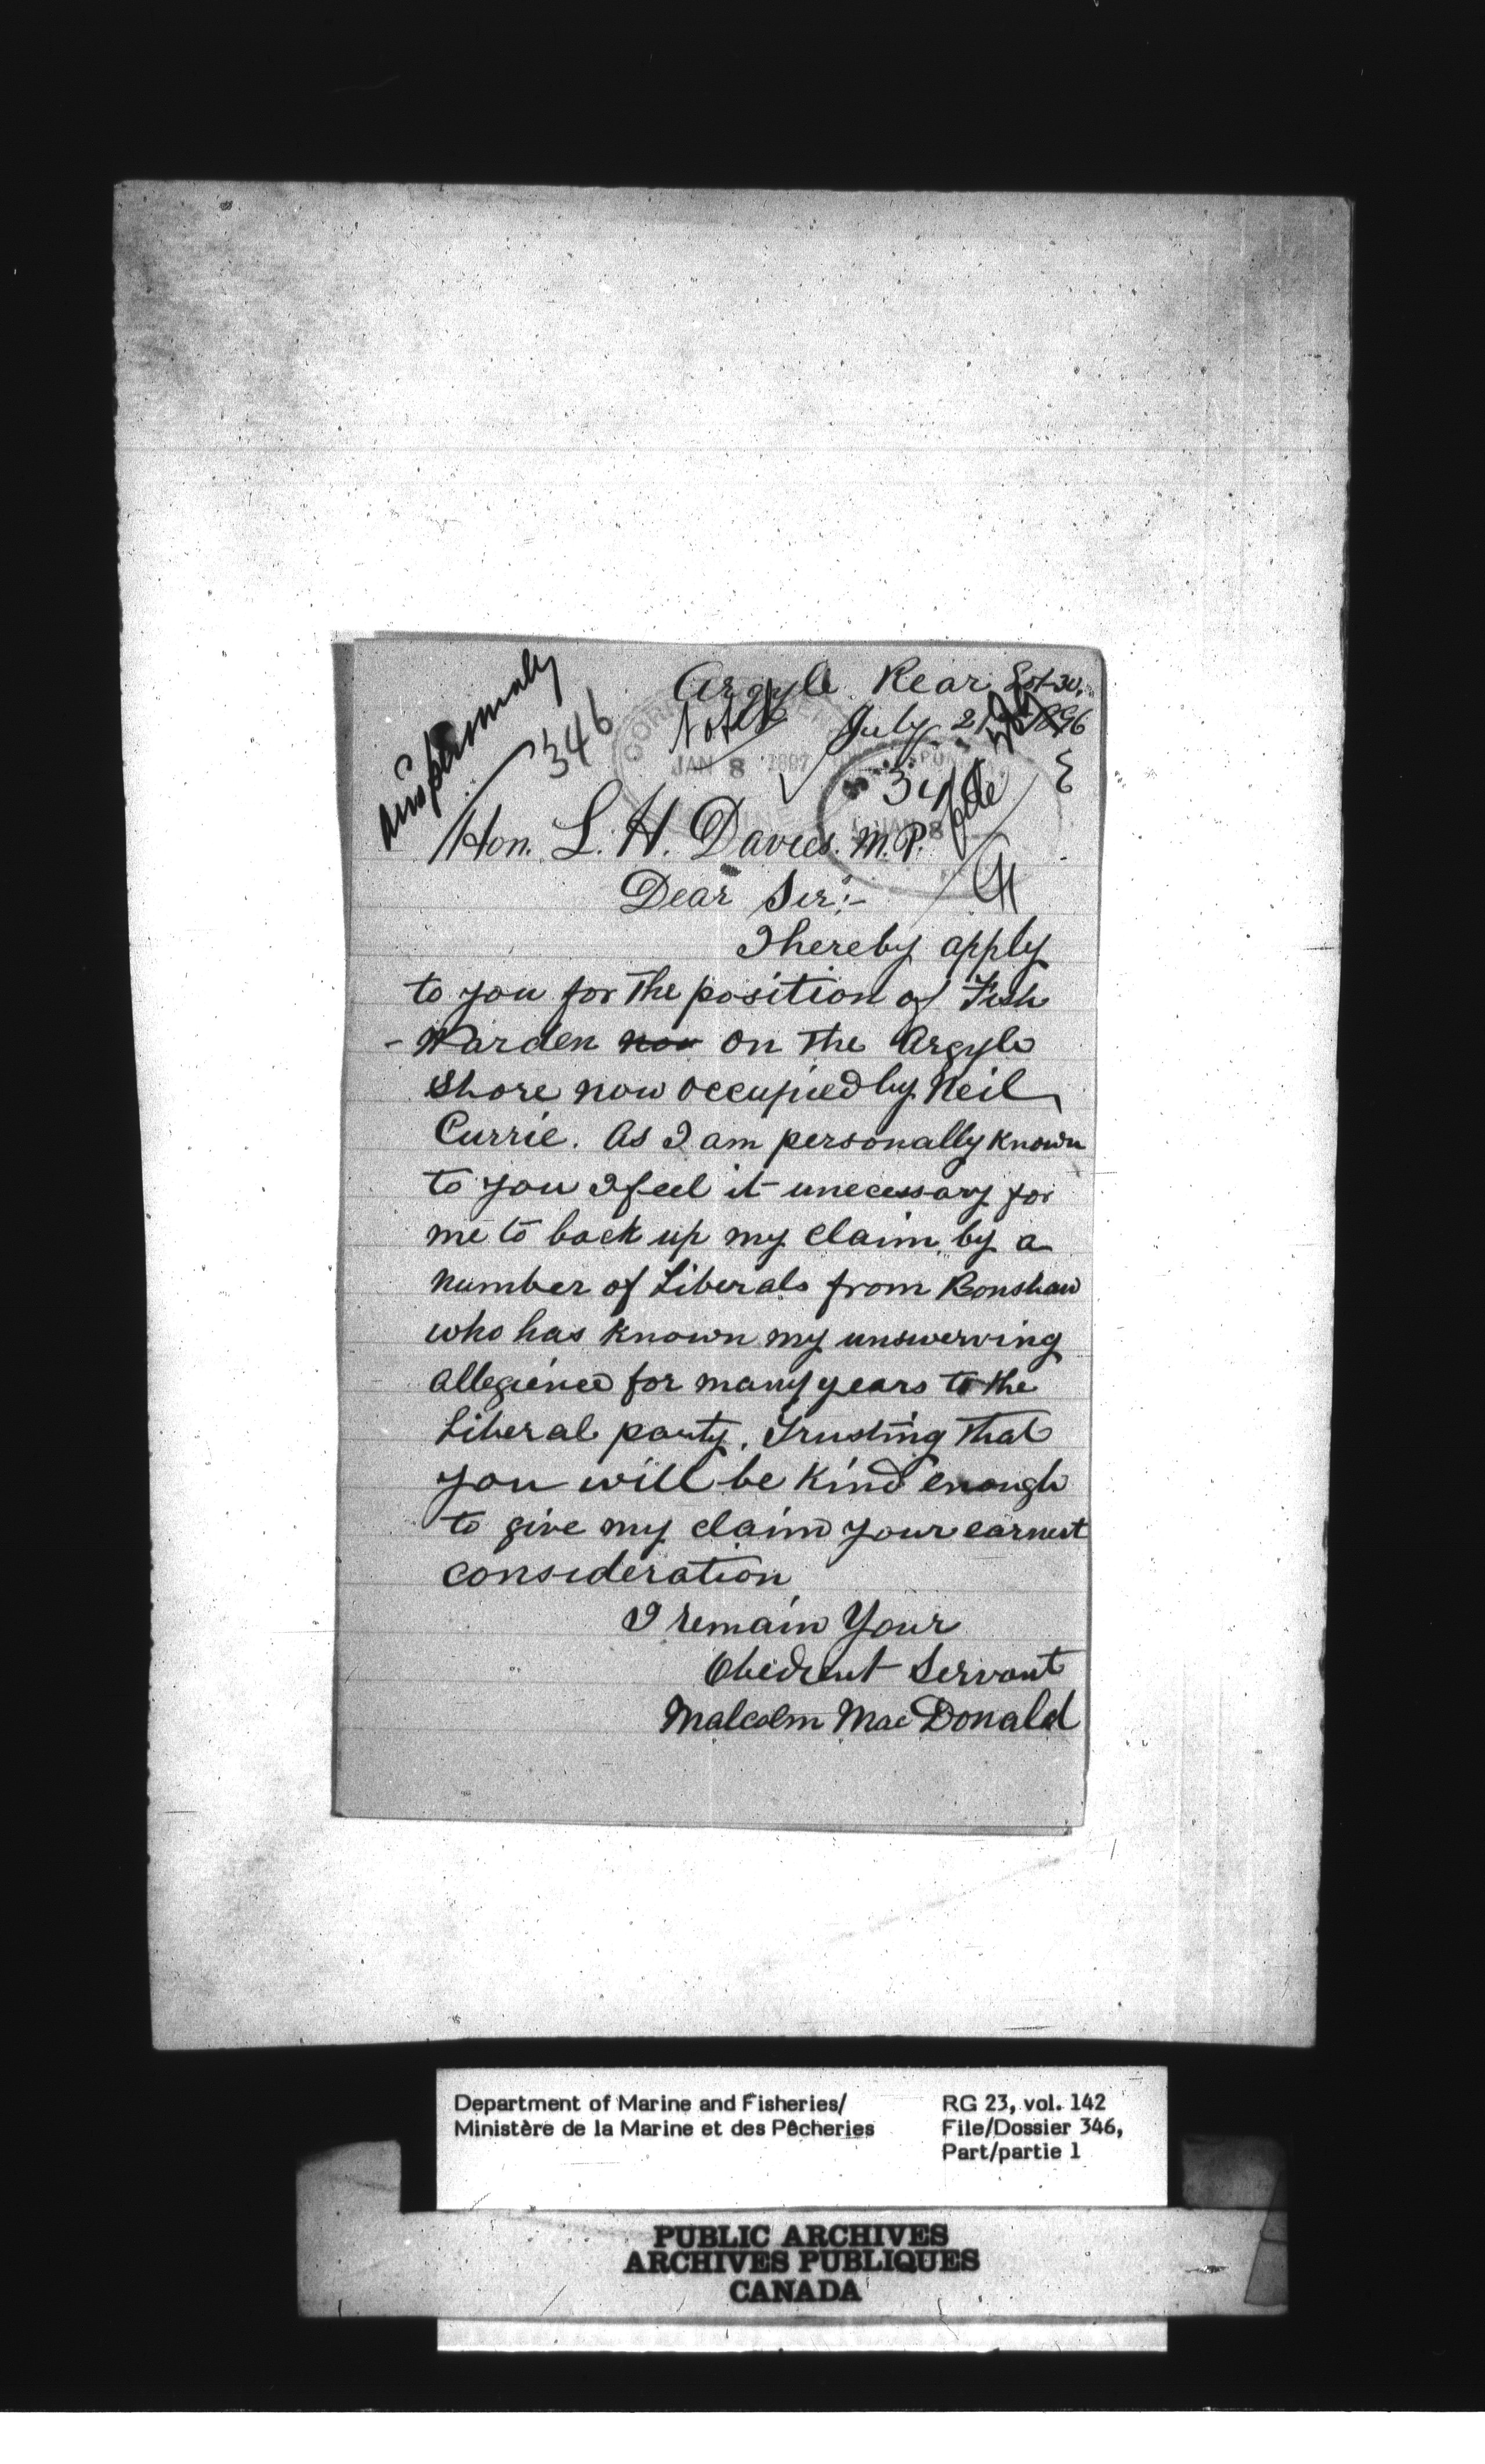 Argyle Rear Lot 30,
Noted July 21 1896
346
JAN 8 1897
346 file
JAN 8
Hon. L. H. Davies. M.P.
Dear Sir:-
I hereby apply
to you for the position of Fish
-Warden now on the Argyle
Shore now occupied by Neil
Currie. As I am personally known
to you I feel it unecessary for
me to back up my claim by a
number of Liberals from Bonshaw
who has known my unswerving
allegience for many years to the
Liberal party. Trusting that
you will be kind enough
to give my claim your earnest
consideration
I remain Your
Obedient Servant
Malcolm MacDonald
Department of Marine and Fisheries/
Ministère de la Marine et des Pêcheries
RG 23, vol. 142
File/Dossier 346,
Part/partie 1
PUBLIC ARCHIVES
ARCHIVES PUBLIQUES
CANADA